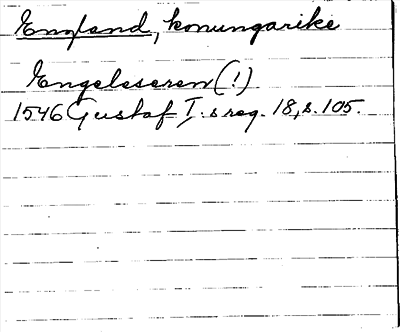 England, konungarike
Engelsseren(!)
1546 Gustaf I:s reg. 18, s. 105.